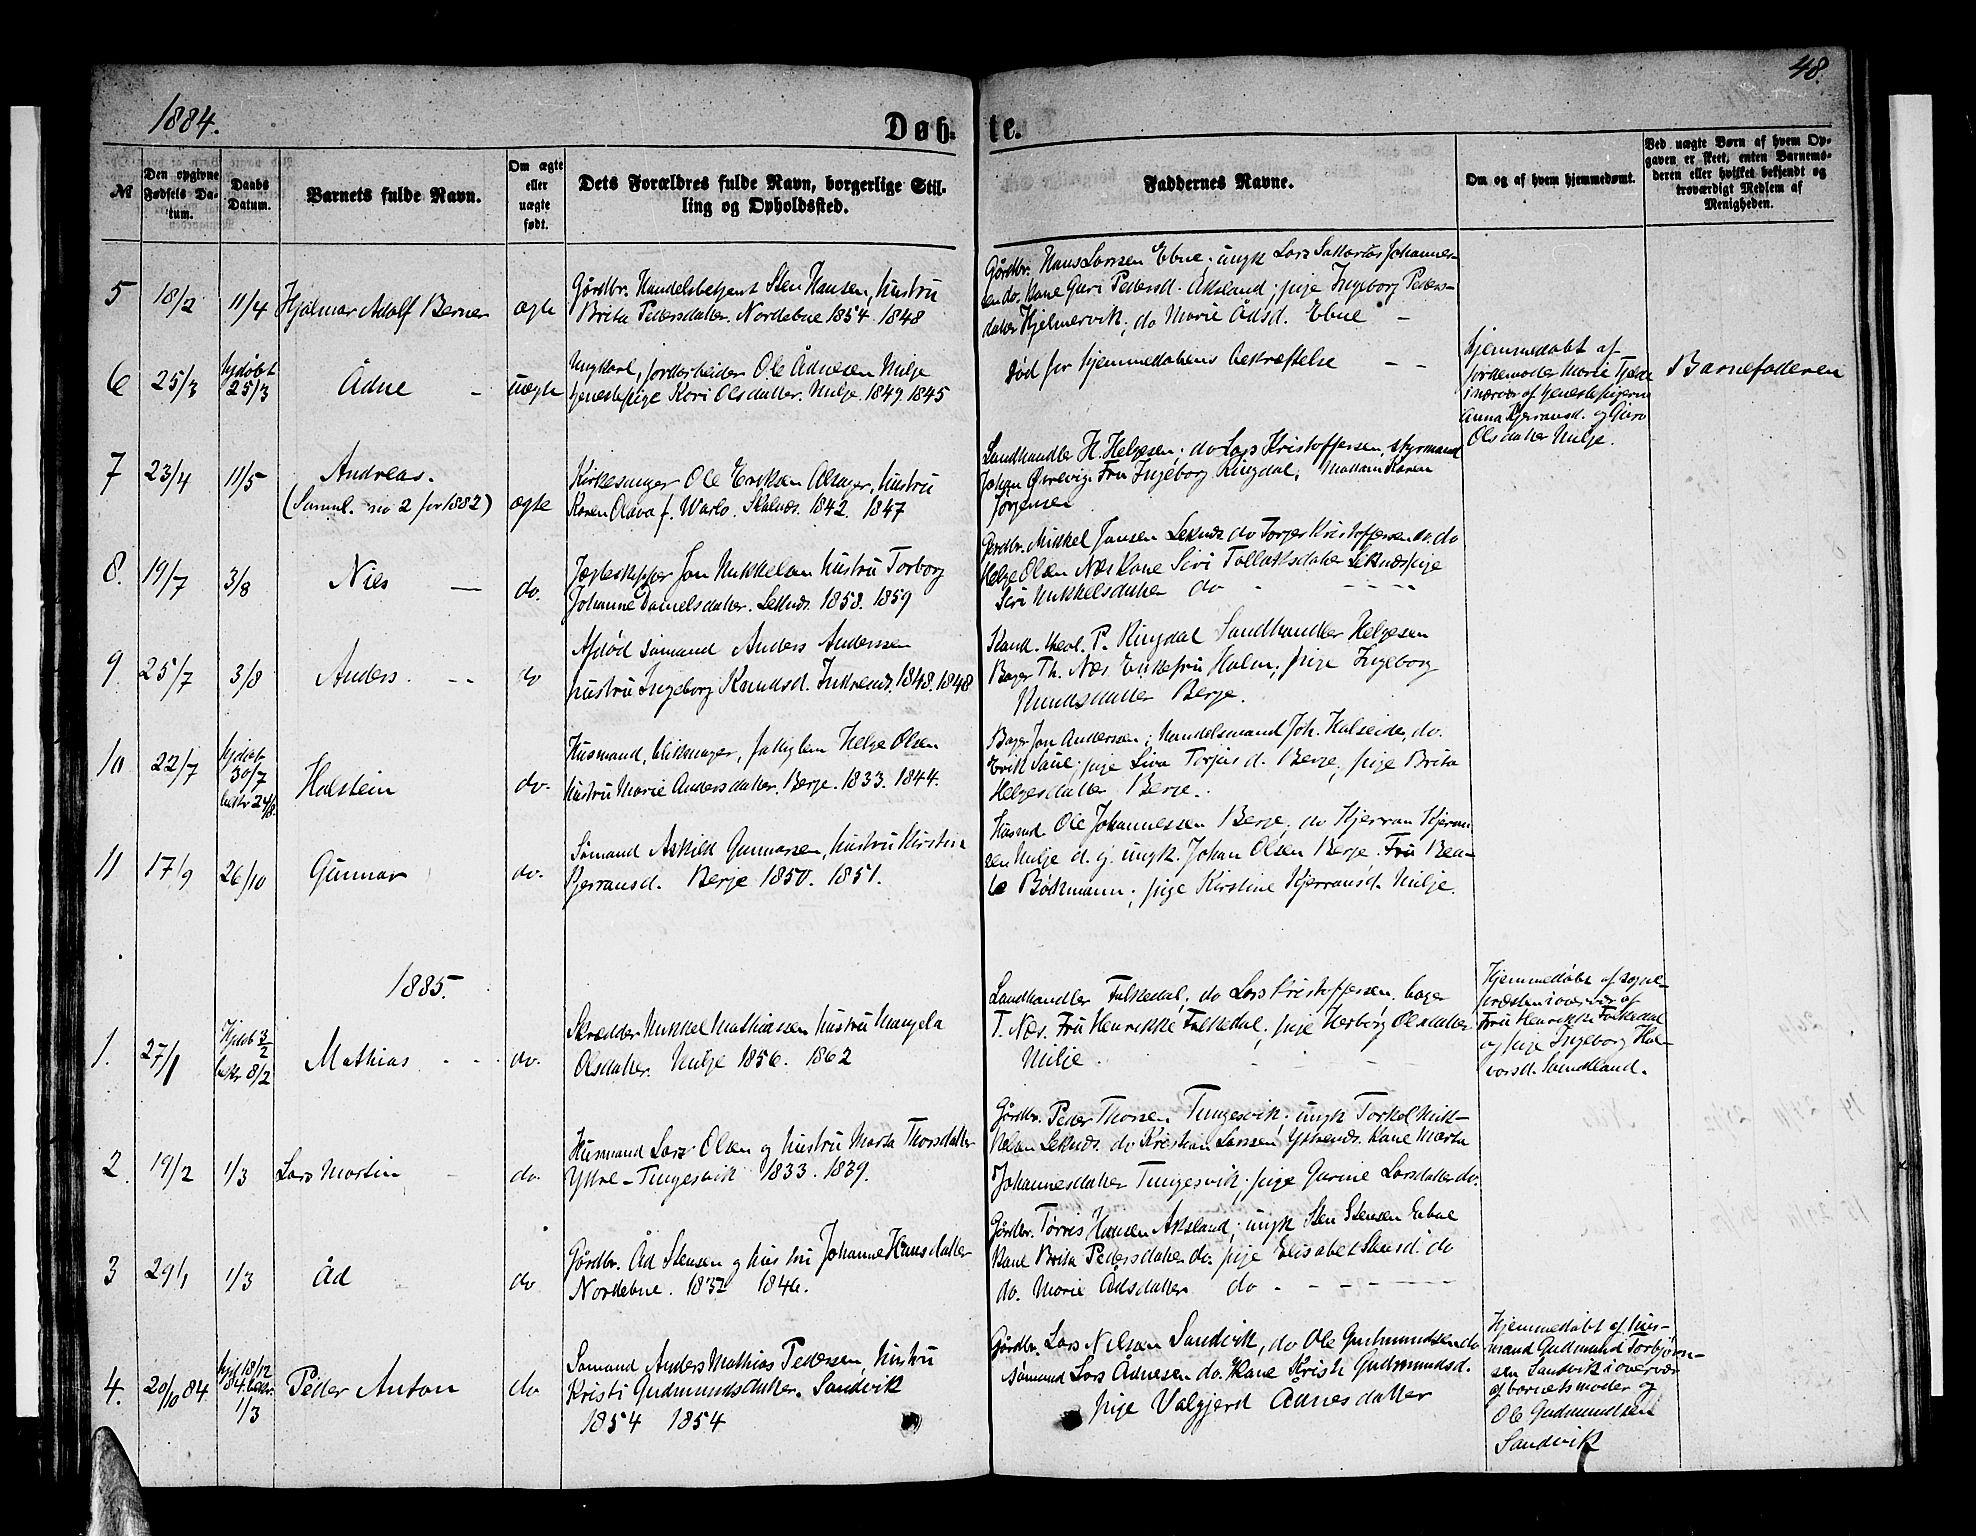 48.
1884.
Døb- te.
№
Den opgivne Fødsels Da- tum.
Daabs Datum.
Barnets fulde Navn.
Om ægte eller uægte født.
Dets Forældres fulde Navn, borgerlige Stil- ling og Opholdssted.
Faddernes Navne.
Om og af hvem hjemmedøbt.
Ved uægte Børn af hvem Op- gaven er skeet, enten Barnemo- deren eller hvilket bekjendt og troværdigt Medlem af Menigheden.
5 18/2 11/4 Hjalmar Adolf Berner ægte
Gårdbr. Handelsbetjent Sten Hansen, hustru
Brita Pedersdatter. Nordebne 1854. 1848
Gårdbr. Hans Larssen Ebne; ungk Lars Johannes-
sen do. Kone Guri Pedersd. Aksland; pige Ingeborg Peders-
datter Hjelmervik; do Marie Ådsd. Ebne –
6 25/3 hjdøbt 25/3 Ådne – uægte
Ungkarl, jordarbeider Ole Ådnesen Milje
tjenestepige Kari Olsdatter. Milje. 1849 1845
død før hjemmedåbens bekræftelse – –
hjemmedøbt af
jordemoder Marie
i nærvær af tjenestepigerne
Anna Kjerransd. og Guro
Olsdatter Milje.
Barnefaderen
7 23/4 11/5 Andreas.
(Samml. no 2 for 1882) ægte
Kirkesanger Ole Eriksen Alsager, hustru
Karen Olava f. Warlo. Skånes. 1842. 1847
Landhandler H. Helgesen; do Lars Kristoffersen, styrmand
Johan Fru Ingeborg Ringdal, Madam Karen
Jørgensen
8. 19/7 3/8 Nils — do.
Jægteskipper Jon Mikkelsen hustru Torborg
Johanne Danielsdatter. Leknes. 1858. 1859
Gårdbr. Mikkel Jonsen Leknes do Torger Kristoffersen do. do
Helge Olsen Næs Kone Siri Tollaksdatter Leknes pige
Siri Mikkelsdatter do - - - -
9 25/7 3/8 Anders. -- do
Afdød sømand Anders Anderssen
hustru Ingeborg Knudsd. 1848. 1848
Kand. theol. P. Ringdal Landhandler Helgesen
Bager Th. Næs. Enkefru Holm; pige Ingeborg
Knudsdatter Berje.
10 22/7 hjdøbt 30/7 bekr 24/8. Halstein do.
Husmand, blikmager, fattiglem Helge Olsen
hustru Marie Andersdatter. Berje. 1833. 1844.
Bager Jon Andersen; handelsmand Joh. Halseide, do.
Erik Saue; pige Siva Torjusd. Berje; pige Brita
Helgesdatter Berje.
11 17/9 26/10 Gunnar do.
Sømand Askild Gunnarsen, hustru Kirstina
Kjerransd. Berje 1850. 1851.
Husmd. Ole Johannessen Berje. do Kjerran Kjeran-
sen Milje d. y. ungk. Johan Olsen Berje. Fru Bea-
te Bøkmann; pige Kirstine Kjerransd. Milje.
1885.
1. 27/1 Hjdøb 3/2 bekr 8/2 Mathias - - do.
Skredder Mikkel Mathiassen hustru Mangela
Olsdatter. Milje 1856. 1862
Landhandler Falkedal; do Lars Kristoffersen. bager
T. Næs. Fru Henrikke Falkedal; pige Herborg Olsdatter
Milje - - -
Hjemmedøbt af sogne-
præsten i overvær af
Fru Henrikke Falkedal
og pige Ingeborg Hal-
vorsd. Svendland.
2. 19/2 1/3 Lars Martin - do.
Husmand Lars Olsen og hustru Marta Thorsdatter
Yttre-Tungesvik 1833. 1839.
Gårdbr. Peder Thorsen Tungesvik; ungk Torkel Mik-
kelsen Leknes. do Kristian Larssen Ystenes. Kone Marta
Johannesdatter Tungesvik; pige Gurine Larsdatter do.
3 29/1 1/3 Åd do
Gårdbr. Åd Stensen og hustru Johanne Hansdatter
Nordebne. 1832 1846.
Gårdbr. Tørris Hansen Aksland; ungk Sten Stensen Ebne
Kone Brita Pedersdatter do. pige Elisabet Stensd. do
do. Marie Ådsdatter do - - - -
4. 20/10 84 hjd 18/12 84 bekr. 1/3 Peder Anton do
Sømand Anders Mathias Pederssen, hustru
Kristi Gudmundsdatter. Sandvik
1854 1854
Gårdbr. Lars Nilsson Sandvik, do Ole Gudmundsen do
sømand Lars Ådnesen do. Kone Kristi Gudmundsd.
pige Valgjerd Ådnesdatter
Hjemmedøbt af hus-
mand Gudmund Torbjørn-
sen Sandvik i overvær
af barnets moder og
Ole Gudmundsen
Sandvik